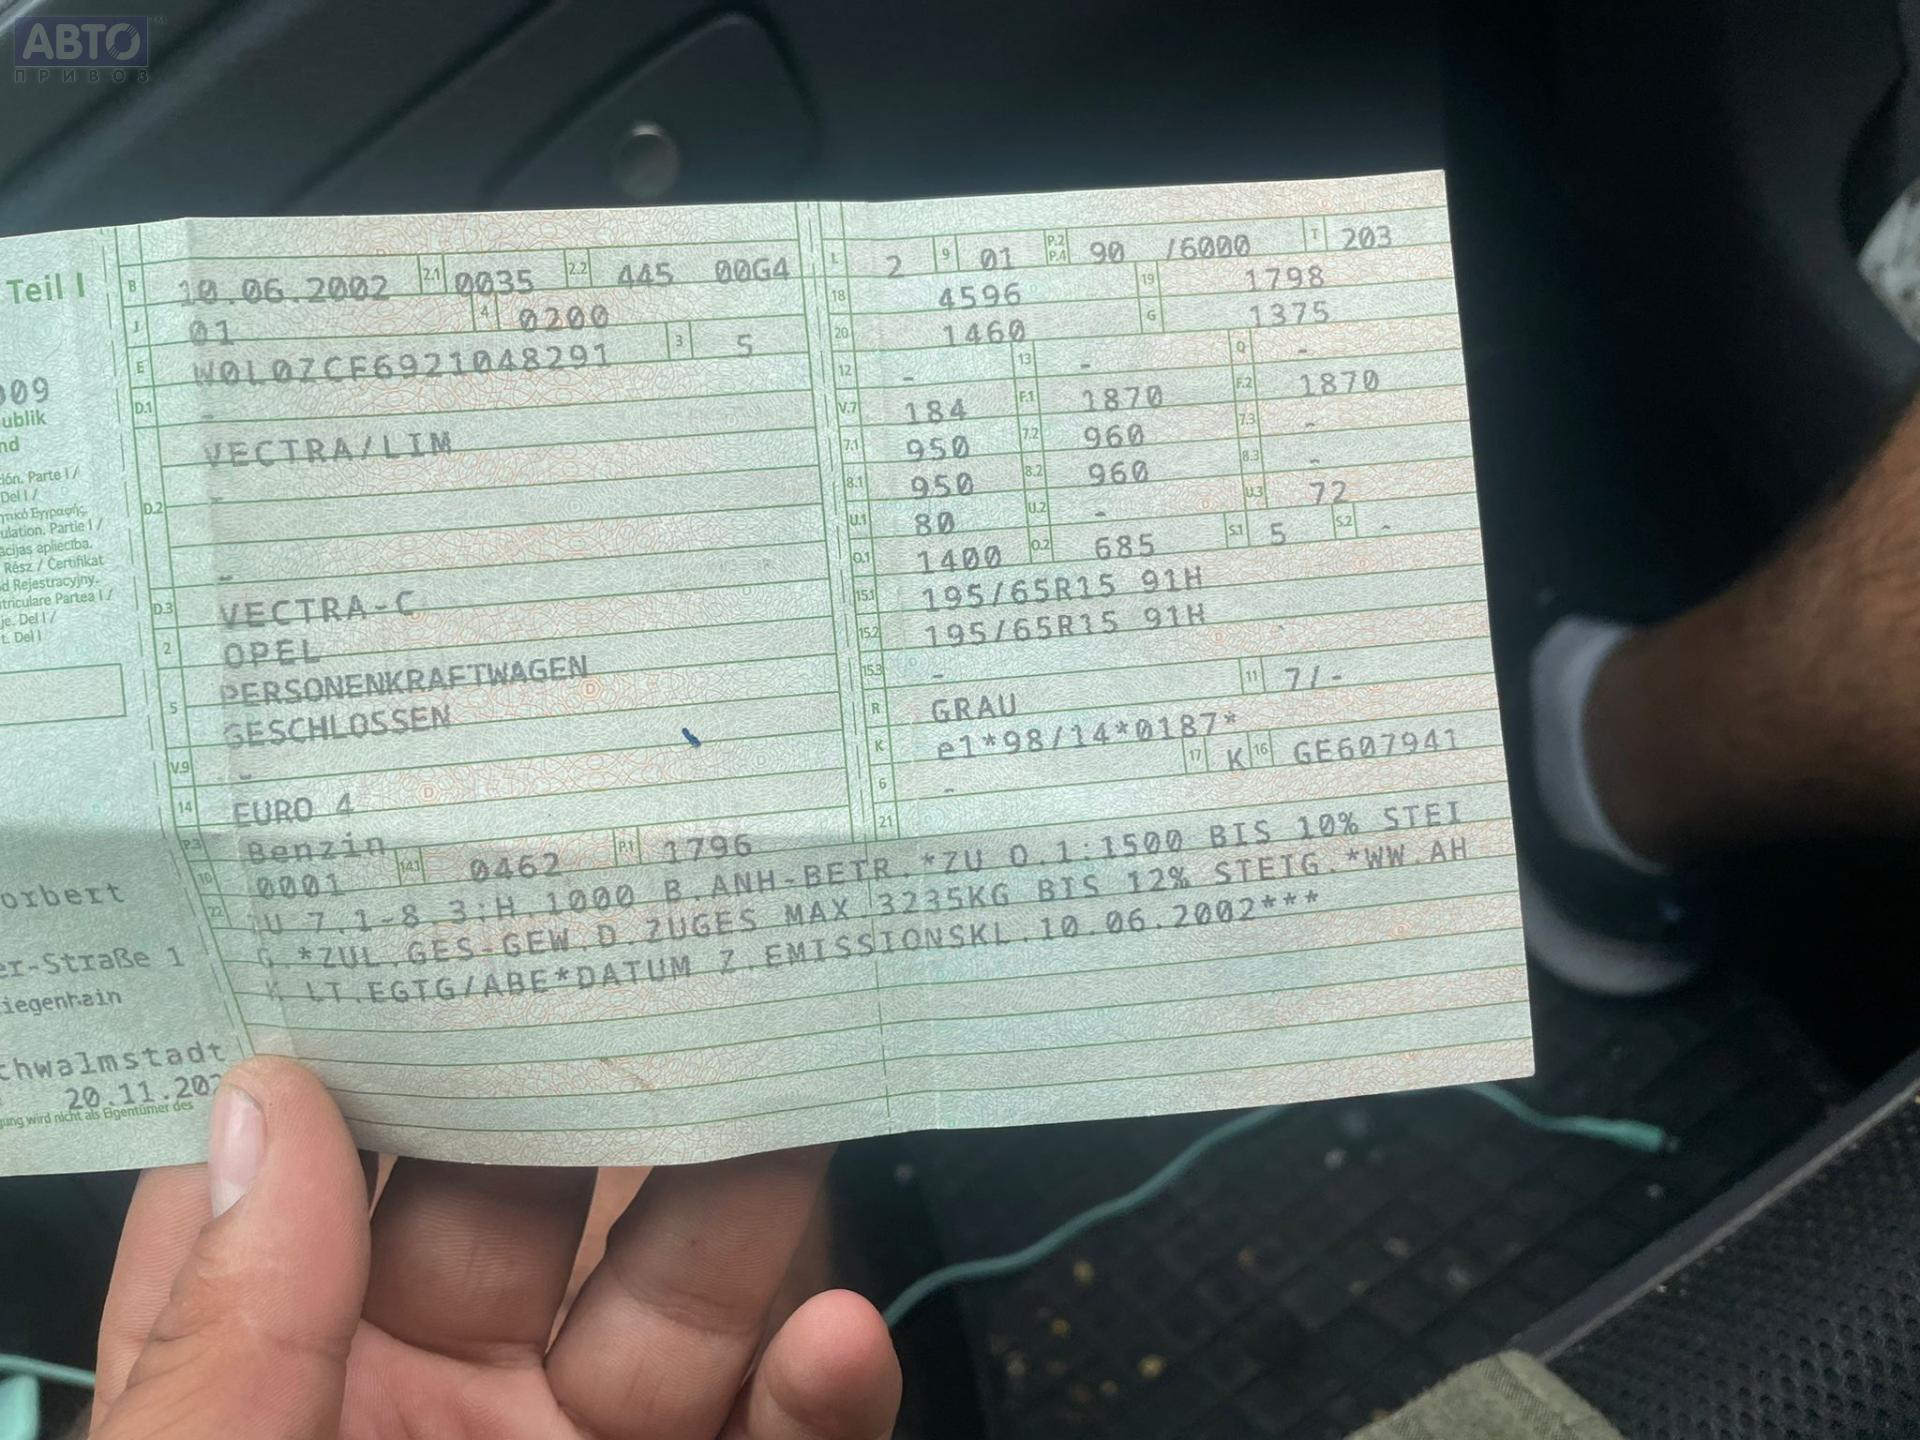 АВТО
ПРИВОЗ
Teil I
009
ublik
nd
ión. Parte I /
Del I /
ulation. Partie I /
ācijas apliecība.
Rész / Certifikat
d Rejestracyjny.
triculare Partea I /
je. Del I /
t. Del I
orbert
er-Straße 1
iegenhain
chwalmstadt
20.11.202
gung wird nicht als Eigentümer des
B 10.06.2002 2.1 0035 2.2 445 00G4
J 01 4 0200
E W0L0ZCF6921048291 3 5
D.1 -
VECTRA/LIM
D.2 -
-
D.3 VECTRA-C
2 OPEL
5 PERSONENKRAFTWAGEN
GESCHLOSSEN
V.9 -
14 EURO 4
P.3 Benzin
10 0001 14.1 0462 P.1 1796
L 2 9 01 P.2 P.4 90 /6000 T 203
18 4596 19 1798
20 1460 G 1375
12 - 13 - Q -
V.7 184 F.1 1870 F.2 1870
7.1 950 7.2 960 7.3 -
8.1 950 8.2 960 8.3 -
U.1 80 U.2 - U.3 72
O.1 1400 O.2 685 S.1 5 S.2 -
15.1 195/65R15 91H
15.2 195/65R15 91H
15.3 -
R GRAU 11 7/-
K e1*98/14*0187*
6 - 17 K 16 GE607941
21
22 ZU 7.1-8.3:H.1000 B.ANH-BETR.*ZU O.1:1500 BIS 10% STEI
G.*ZUL.GES-GEW.D.ZUGES MAX.3235KG BIS 12% STEIG.*WW.AH
K LT.EGTG/ABE*DATUM Z.EMISSIONSKL.10.06.2002***